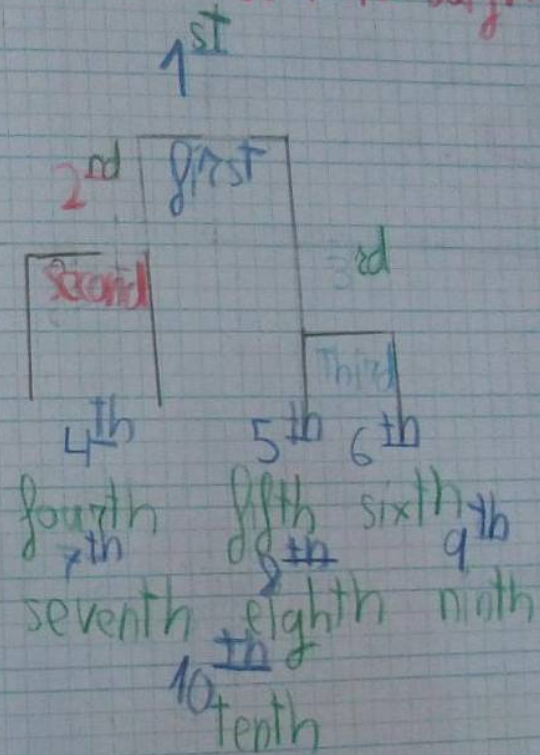 1st
2rd first
second 3rd
third
4th 5th 6th
fourth fifth sixth
7th 8th 9th
seventh eighth ninth
10th
tenth